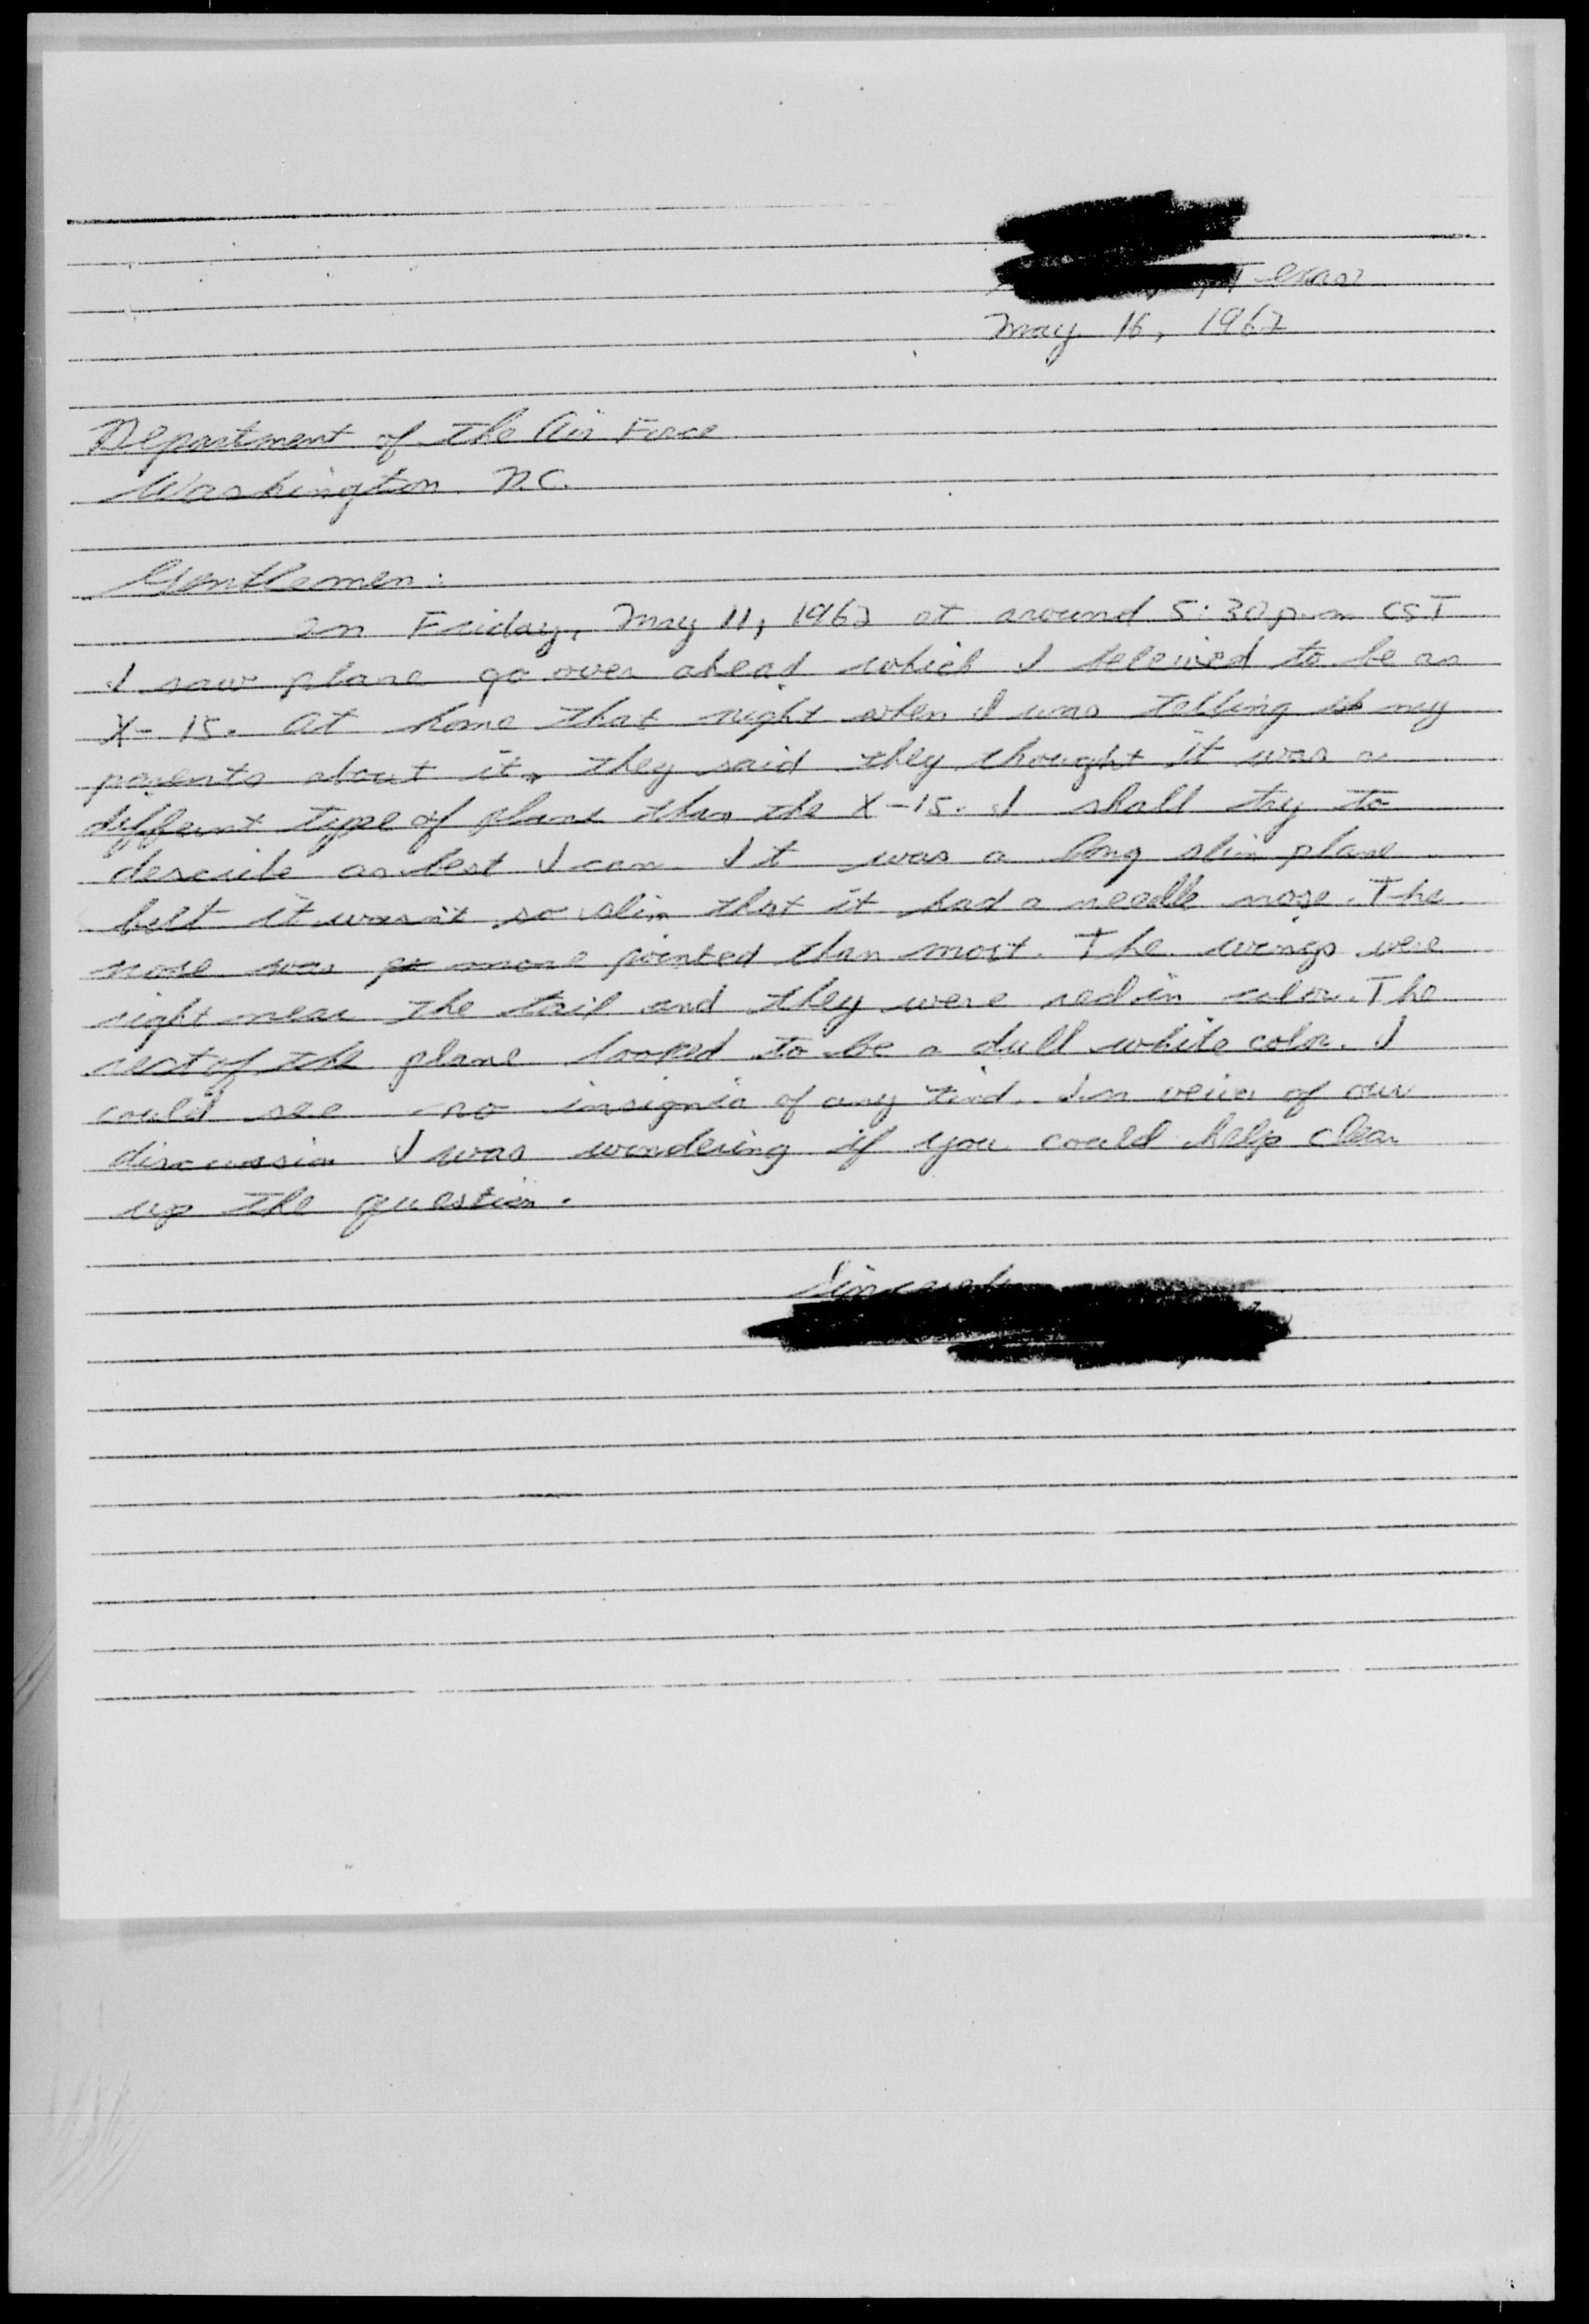 Texas
May 16, 1962
Department of the Air Force
Washington D.C.
Gentlemen:
On Friday, May 11, 1962 at around 5:30 p.m CST
I saw plane go over ahead which I beleived to be an
X-15. At home that night when I was telling my
parents about it, they said they thought it was a
differnt type of plane than the X-15. I shall try to
describe as best I can It was a long slim plane
but it wasn't so slim that it had a needle nose. The
nose was more pointed than most. The wings were
right near the tail and they were red in color. The
rest of the plane looked to be a dull white color. I
could see no insignia of any kind. In veiw of our
discussion I was wondering if you could help clear
up the question.
Sincerely